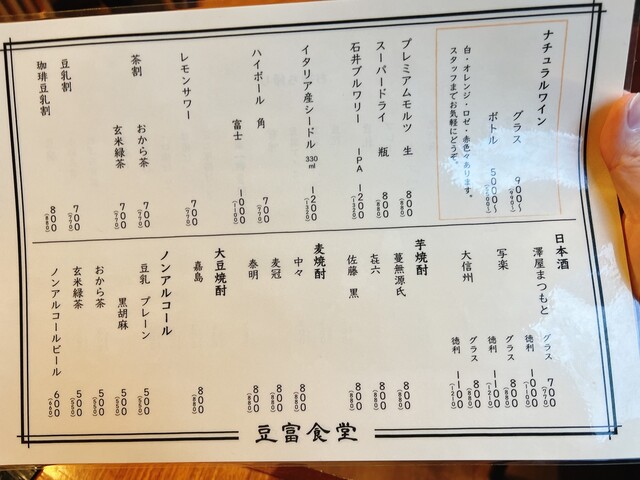 ナチュラルワイン
グラス 900〜 (990〜)
ボトル 5000〜 (5500〜)
白・オレンジ・ロゼ・赤色々あります。
スタッフまでお気軽にどうぞ。
プレミアムモルツ 生 800 (880)
スーパードライ 瓶 800 (880)
石井ブルワリー IPA 1200 (1320)
イタリア産シードル 330ml 1200 (1320)
ハイボール 角 700 (770)
富士 1000 (1100)
レモンサワー 700 (770)
茶割 おから茶 700 (770)
玄米緑茶 700 (770)
豆乳割 700 (770)
珈琲豆乳割 800 (880)
日本酒
澤屋まつもと グラス 700 (770)
徳利 1000 (1100)
写楽 グラス 800 (880)
徳利 1100 (1210)
大信州 グラス 800 (880)
徳利 1100 (1210)
芋焼酎
蔓無源氏 800 (880)
㐂六 800 (880)
佐藤 黒 800 (880)
麦焼酎
中々 800 (880)
麦冠 800 (880)
泰明 800 (880)
大豆焼酎
嘉島 800 (880)
ノンアルコール
豆乳 プレーン 500 (550)
黒胡麻 500 (550)
おから茶 500 (550)
玄米緑茶 500 (550)
ノンアルコールビール 600 (660)
豆富食堂